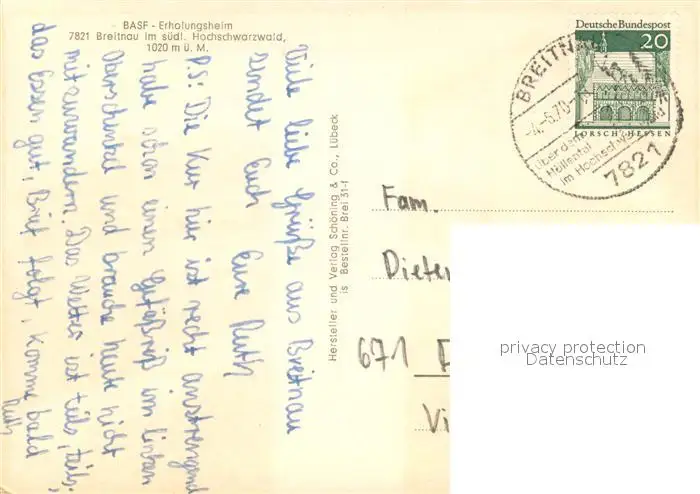 BASF - Erholungsheim
7821 Breitnau im südl. Hochschwarzwald,
1020 m ü. M.
Viele liebe Grüße aus Breitnau
sendet Euch Eure Ruth
P.S: Die Kur hier ist recht anstrengend
habe schon einen Gefäßriß im linken
Oberschenkel und brauche heute nicht
mitzuwandern. Das Wetter ist teils, teils,
das Essen gut, Brief folgt, komme bald
Ruth
Hersteller und Verlag Schöning & Co., Lübeck
is Bestellnr. Brei 31-f
Deutsche Bundespost
20
LORSCH/HESSEN
BREITNAU
-4.-6.70-
über dem
Höllental
im Hochschwarzwald
7821
Fam.
Dieter
671
Vi
privacy protection
Datenschutz